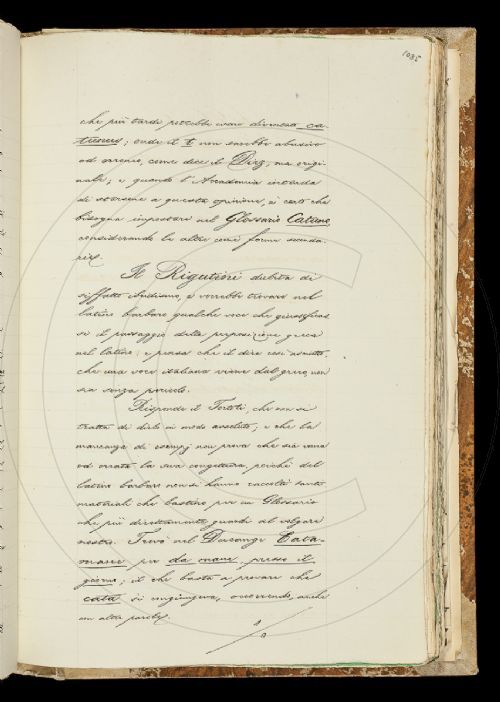 1085
che più tardi potrebbe esser diventato ca-
tunus; onde il t non sarebbe abusivo
od erroneo, come dice il Diez, ma origi-
nale; e quando l'Accademia intenda
di starsene a questa opinione, è certo che
bisogna impostare nel Glossario Catuno,
considerando le altre come forme seconda-
rie.
Il Rigutini dubita di
siffatto , e vorrebbe trovare nel
latino barbaro qualche voce che giustificas-
se il passaggio della preposizione greca
nel latino; e pensa che il dire così asciutto,
che una voce italiana viene dal greco, non
sia senza pericolo.
Risponde il Tortoli, che non si
tratta di dirlo in modo assoluto; e che la
mancanza di esempj non prova che sia vana
od errata la sua congettura, perchè del
latino barbaro non si hanno raccolti tanti
materiali che bastino per un Glossario
che più direttamente guardi al volgare
nostro. Trovò nel Ducange Cata-
mane per da mane, presso il
giorno; il che basta a provare che
cata si congiungeva, occorrendo, anche
con altre parole.